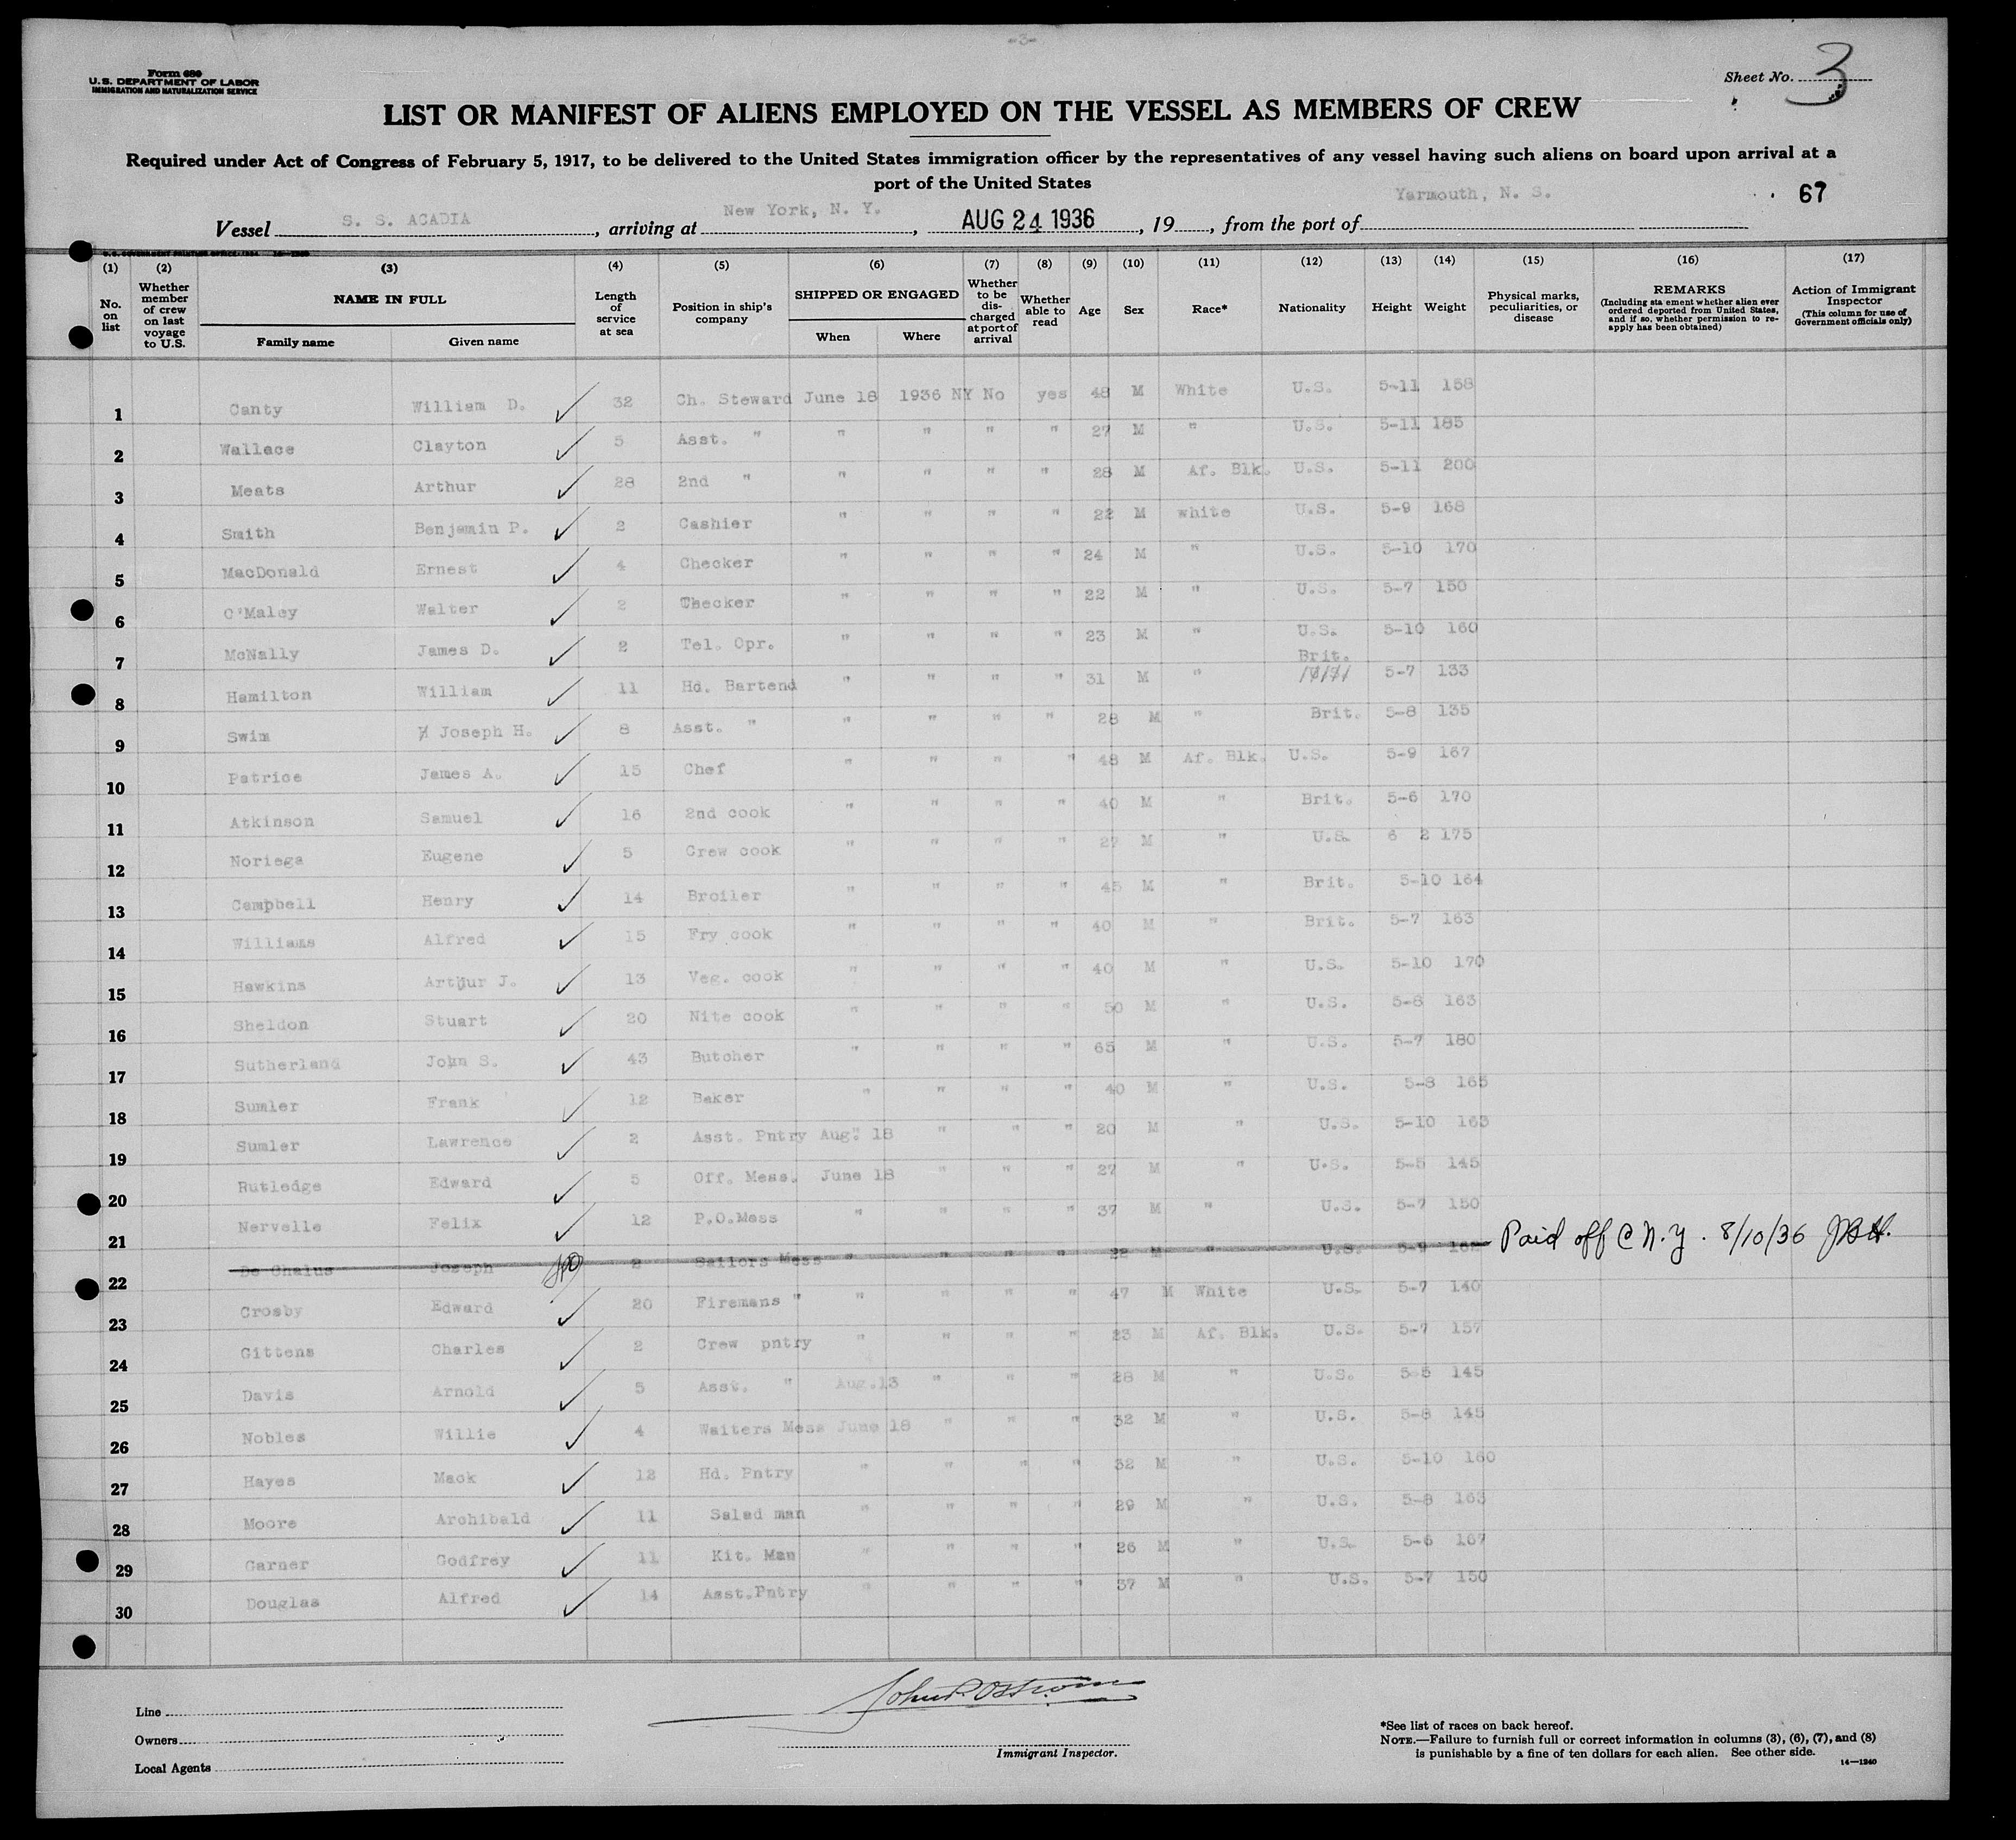 -3-
Form 680
U.S. DEPARTMENT OF LABOR
IMMIGRATION AND NATURALIZATION SERVICE
Sheet No. 3
LIST OR MANIFEST OF ALIENS EMPLOYED ON THE VESSEL AS MEMBERS OF CREW
Required under Act of Congress of February 5, 1917, to be delivered to the United States immigration officer by the representatives of any vessel having such aliens on board upon arrival at a
port of the United States
67
Vessel S. S. ACADIA, arriving at New York, N. Y., AUG 24 1936, 19, from the port of Yarmouth, N. S.
(1) (2) (3) (4) (5) (6) (7) (8) (9) (10) (11) (12) (13) (14) (15) (16) (17)
No. on list
Whether member of crew on last voyage to U.S.
NAME IN FULL
Family name Given name
Length of service at sea
Position in ship's company
SHIPPED OR ENGAGED
When Where
Whether to be discharged at port of arrival
Whether able to read
Age Sex Race* Nationality Height Weight
Physical marks, peculiarities, or disease
REMARKS
(Including statement whether alien ever ordered deported from United States, and if so, whether permission to re-apply has been obtained)
Action of Immigrant Inspector
(This column for use of Government officials only)
1 Canty William D. ✓ 32 Ch. Steward June 18 1936 NY No yes 48 M White U.S. 5-11 158
2 Wallace Clayton ✓ 5 Asst. " " " " " 27 M " U.S. 5-11 185
3 Meats Arthur ✓ 28 2nd " " " " " 28 M Af. Blk. U.S. 5-11 200
4 Smith Benjamin P. ✓ 2 Cashier " " " " 22 M white U.S. 5-9 168
5 MacDonald Ernest ✓ 4 Checker " " " " 24 M " U.S. 5-10 170
6 O'Maley Walter ✓ 2 Checker " " " " 22 M " U.S. 5-7 150
7 McNally James D. ✓ 2 Tel. Opr. " " " " 23 M " U.S. 5-10 160
8 Hamilton William ✓ 11 Hd. Bartend " " " " 31 M " Brit. 5-7 133
9 Swim Joseph H. ✓ 8 Asst. " " " " " 28 M " Brit. 5-8 135
10 Patrice James A. ✓ 15 Chef " " " " 48 M Af. Blk. U.S. 5-9 167
11 Atkinson Samuel ✓ 16 2nd cook " " " " 40 M " Brit. 5-6 170
12 Noriega Eugene ✓ 5 Crew cook " " " " 27 M " U.S. 6 2 175
13 Campbell Henry ✓ 14 Broiler " " " " 45 M " Brit. 5-10 164
14 Williams Alfred ✓ 15 Fry cook " " " " 40 M " Brit. 5-7 163
15 Hawkins Arthur J. ✓ 13 Veg. cook " " " " 40 M " U.S. 5-10 170
16 Sheldon Stuart ✓ 20 Nite cook " " " " 50 M " U.S. 5-8 163
17 Sutherland John S. ✓ 43 Butcher " " " " 65 M " U.S. 5-7 180
18 Sumler Frank ✓ 12 Baker " " " " 40 M " U.S. 5-8 165
19 Sumler Lawrence ✓ 2 Asst. Pntry Aug. 18 " " " 20 M " U.S. 5-10 163
20 Rutledge Edward ✓ 5 Off. Mess. June 18 " " " 27 M " U.S. 5-5 145
21 Nervelle Felix ✓ 12 P.O.Mess " " " " 37 M " U.S. 5-7 150
22 De Chalus Joseph 2 Sailors Mess " " " " 22 M " U.S. 5-9 Paid off @ N.Y. 8/10/36 JBH.
23 Crosby Edward ✓ 20 Firemans " " " " " 47 M White U.S. 5-7 140
24 Gittens Charles ✓ 2 Crew pntry " " " " 23 M Af. Blk. U.S. 5-7 157
25 Davis Arnold ✓ 5 Asst. " Aug.13 " " " 28 M " U.S. 5-5 145
26 Nobles Willie ✓ 4 Waiters Mess June 18 " " " 32 M " U.S. 5-8 145
27 Hayes Mack ✓ 12 Hd. Pntry " " " " 32 M " U.S. 5-10 160
28 Moore Archibald ✓ 11 Salad man " " " " 29 M " U.S. 5-8 163
29 Garner Godfrey ✓ 11 Kit. Man " " " " 26 M " U.S. 5-6 167
30 Douglas Alfred ✓ 14 Asst.Pntry " " " " 37 M " U.S. 5-7 150
Line
Owners
Local Agents
John P. Ostrom
Immigrant Inspector.
*See list of races on back hereof.
NOTE.—Failure to furnish full or correct information in columns (3), (6), (7), and (8)
is punishable by a fine of ten dollars for each alien. See other side.
14—1240